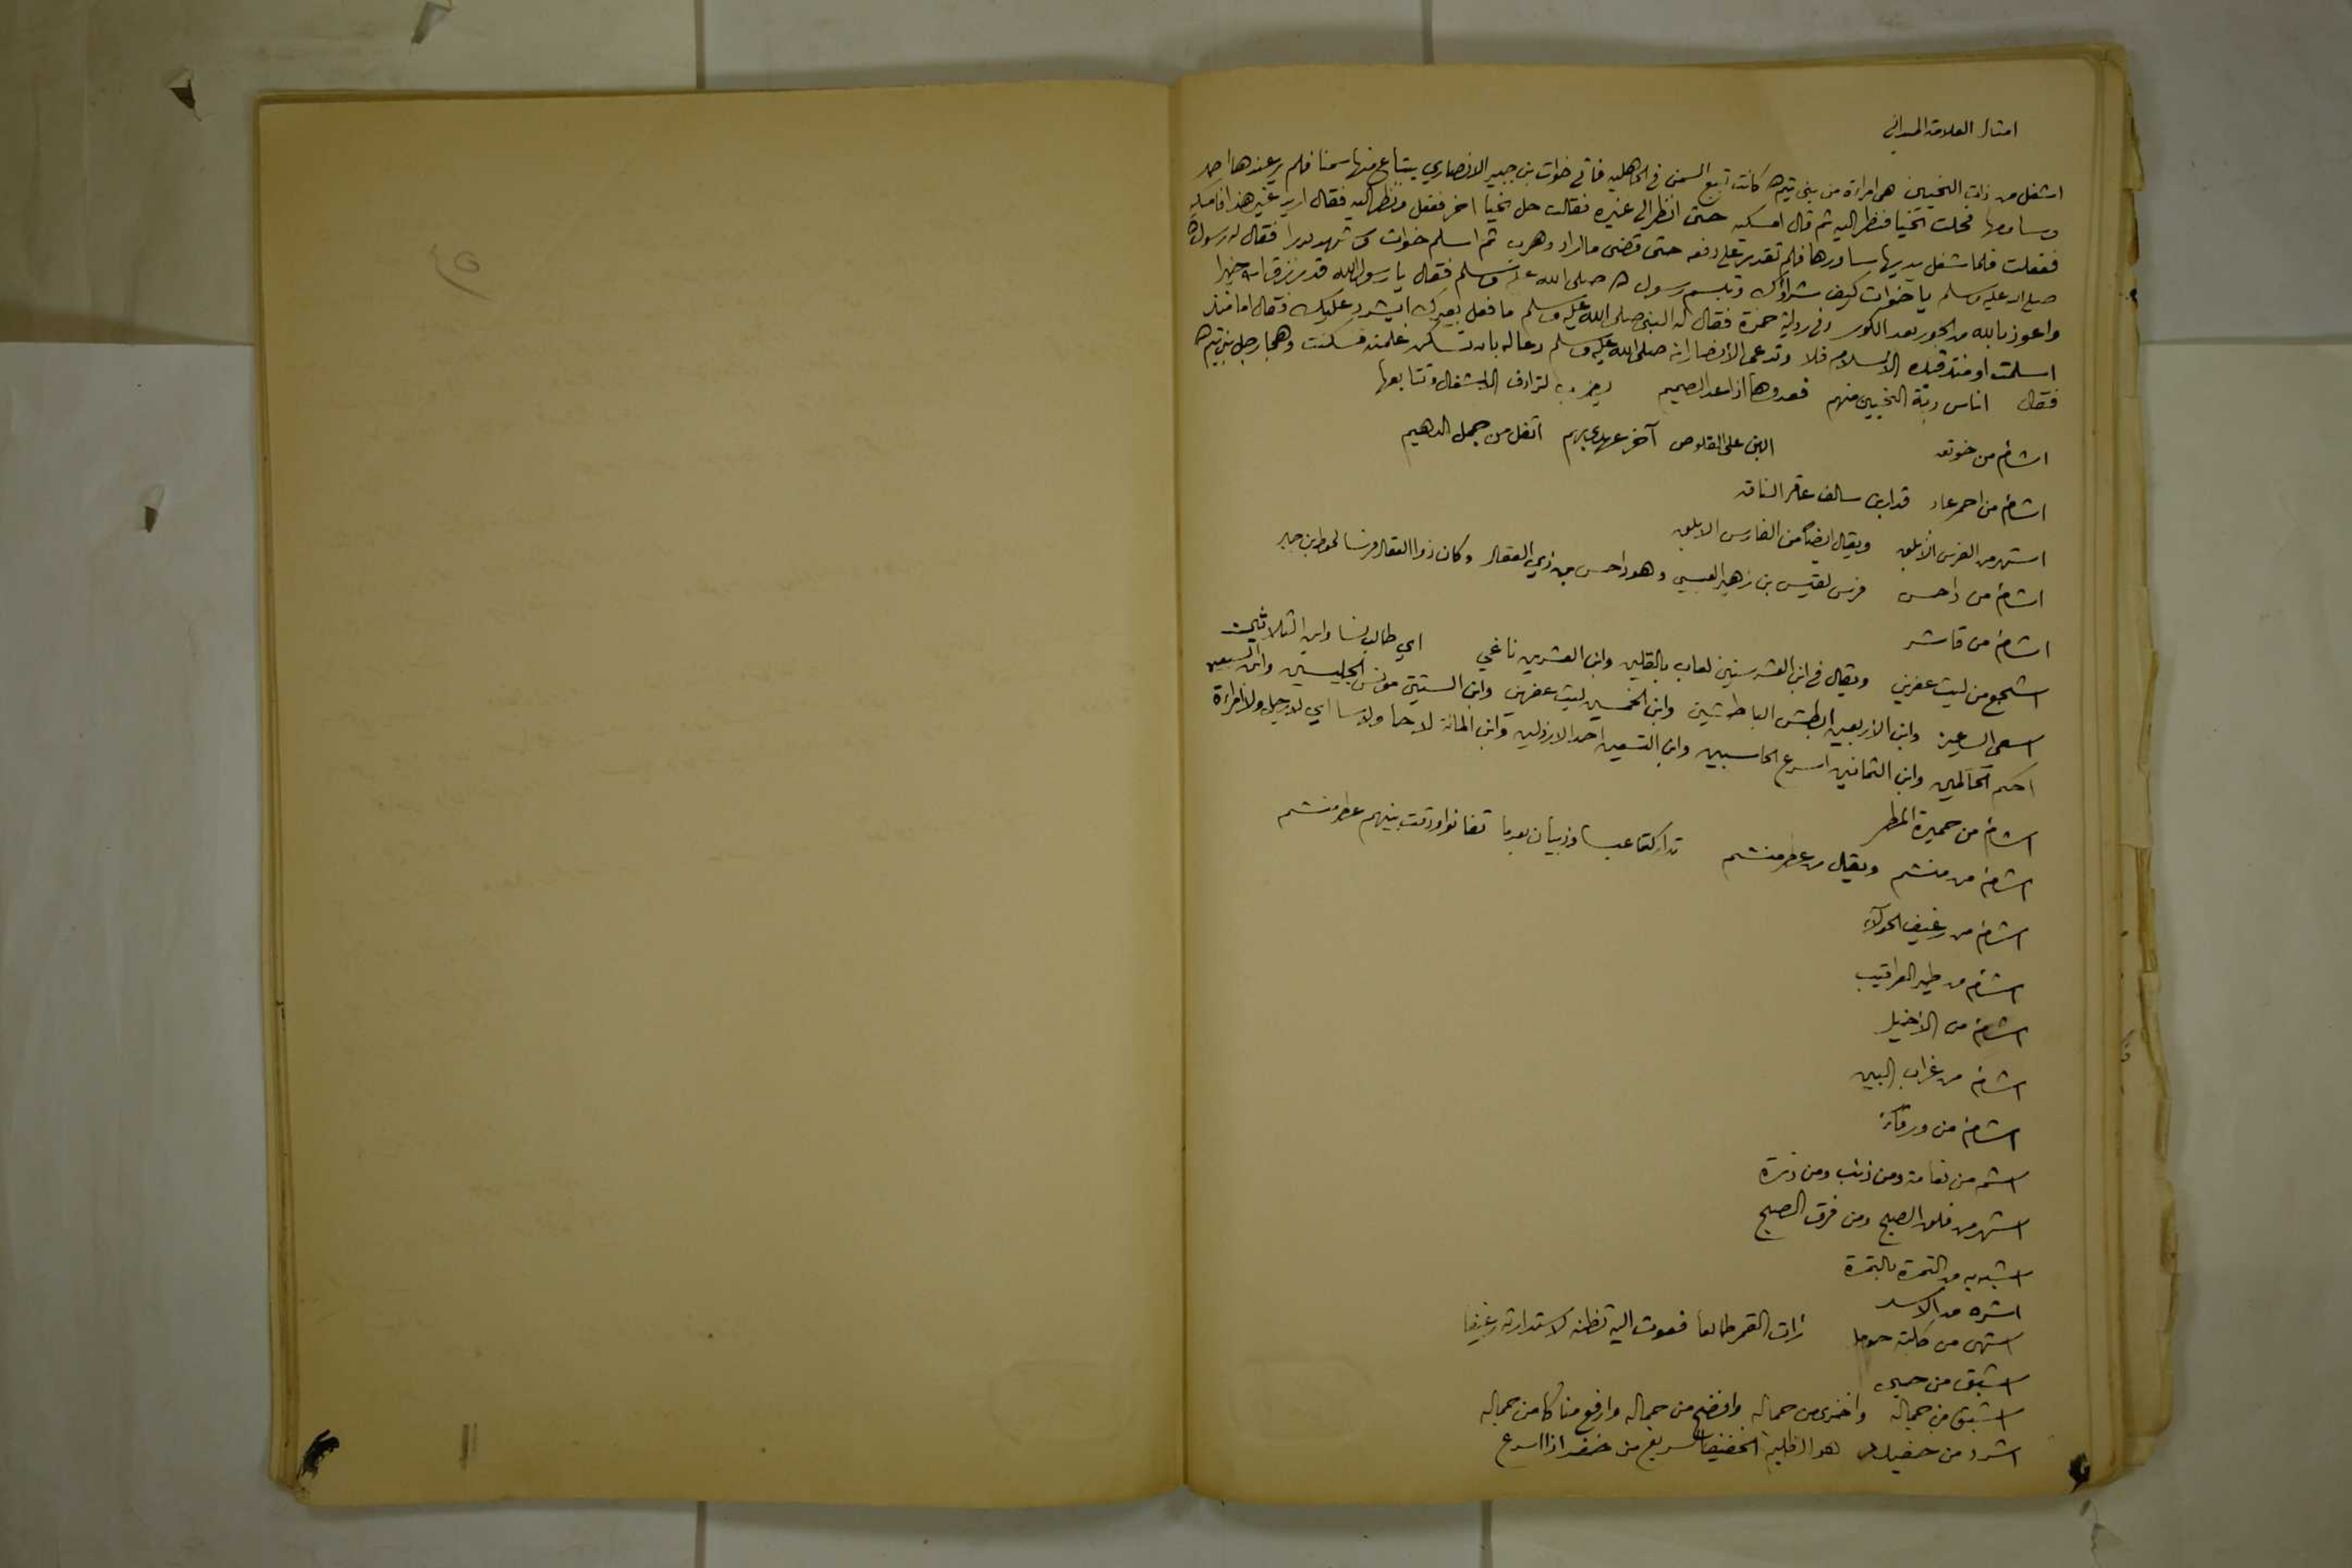 امثال العلامة الميداني
اشغل من ذات النحيين هى امراة من بنى تيم ه كانت تبيع السمن فى الجاهليه فاتى خوات بن جبير الانصاري يبتاع منها سمنا فلم ير عندها احد
وساومها فحلت نحيا فنظر اليه ثم قال امسكيه حتى انظر الى غيره فقالت حل نحيا اخر ففعل ونظر اليه فقال اريد غير هذا فامسكيه
ففعلت فلما شغل يديها ساورها فلم تقدر على دفعه حتى قضى ما اراد وهرب ثم اسلم خوات وشهد بدرا فقال له رسول ه
صلى الله عليه وسلم يا خوات كيف شراؤك وتبسم رسول ه صلى الله عليه وسلم فقال يا رسول الله قد رزق الله خيرا
واعوذ بالله من الحور بعد الكور وفى رواية حمزة فقال له النبى صلى الله عليه وسلم ما فعل بعيرك ايشرد عليك فقال اما منذ
اسلمت او منذ قيده الاسلام فلا وتدعى الانصار انه صلى الله عليه وسلم دعا له بان تسكن غلمته فسكنت وهجا رجل بنى تيم ه
فقال اناس ربة النحيين منهم فعدوها اذا عد الصميم يضرب لترادف الاشغال وتتابعها
اشام من خوتعه البن على القلوص آخر عهدى بهم اثقل من حمل الدهيم
اشام من احمر عاد قدار بن سالف عاقر الناقه
اشهر من الفرس الابلق ويقال ايضا من الفارس الابلق
اشام من داحس فرس لقيس بن زهير العبسي وهو داحس بن ذي العقال وكان ذو العقال فرسا لحوط بن جابر
اشام من قاشر
اشجع من ليث عفرين ويقال فى ابن العشر سنين لعاب بالقلين وابن العشرين باغي اي طالب نسا وابن الثلاثين
اسعى الساعين وابن الاربعين ابطش الباطشين وابن الخمسين ليث عفرين وابن الستين مونس الجليسين وابن السبعين
احكم الحاكمين وابن الثمانين اسرع الحاسبين وابن التسعين احد الارذلين وابن المائة لا جا ولا سا اي لا رجل ولا امراة
اشام من حميرة المطر
اشام من منشم ويقال من عطر منشم تداركتما عبسا وذبيان بعدما تفانوا ودقت بينهم عطر منشم
اشام من رغيف الحولاء
اشام من طير العراقيب
اشام من الاخيل
اشام من غراب البين
اشام من ورقاء
اشم من نعامة ومن ذئب ومن ذرة
اشهر من فلق الصبح ومن فرق الصبح
اشبه به من التمرة بالتمرة
اشره من الاسد
اشهى من كلبة حومل رات القمر طالعا فعوت اليه تظنه لاستدارته رغيفا
اشبق من حبى
اشبق من جمالة واخزى من جمالة وافضح من جمالة وارفع مناكا من جمالة
اشرد من خفيدد هو الظليم الخفيف السريع من خفد اذا اسرع